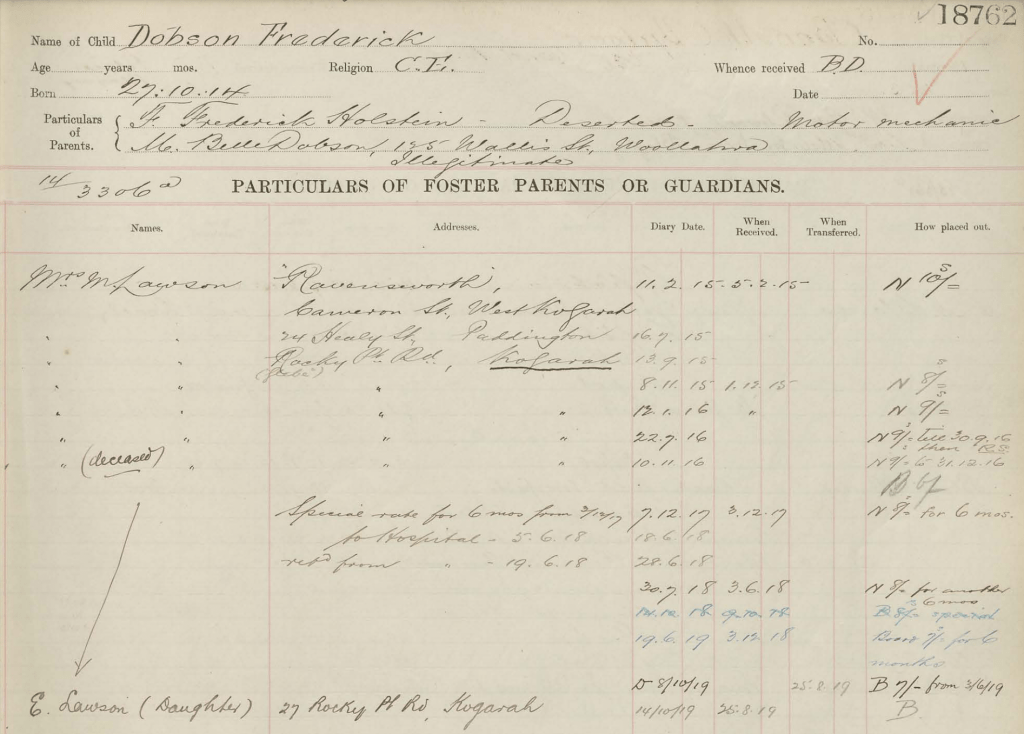 18762
Name of Child Dobson Frederick No.
Age years mos. Religion C.E. Whence received B.D.
Born 27.10.14 Date
Particulars of Parents. { F. Frederick Holstein - Deserted - Motor mechanic
M. Belle Dobson, 125 Wallis St, Woollahra
Illegitimate
14/3306a
PARTICULARS OF FOSTER PARENTS OR GUARDIANS.
Names. Addresses. Diary Date. When Received. When Transferred. How placed out.
Mrs M. Lawson "Ravensworth", 11.2.15 5.2.15 N 10/=
Cameron St, West Kogarah
" " 24 Healy St, Paddington 16.7.15
" " Rocky Pt. Rd., Kogarah 13.9.15
" " " 8.11.15 1.12.15 N 8/=
" " " " 12.1.16 " N 9/=
" " " " 22.7.16 N 9/= till 30.9.16
then
" (deceased) " " " 10.11.16 N 9/= to 31.12.16
B 6/
Special rate for 6 mos from 3/12/17 7.12.17 3.12.17 N 8/= for 6 mos.
to Hospital - 5.6.18 18.6.18
retd from " - 19.6.18 28.6.18
30.7.18 3.6.18 N 8/= for another
6 mos
B 8/= special
19.6.19 3.12.18 Board 7/= for 6
months
D 8/10/19 25.8.19 B 7/- from 3/6/19
E. Lawson (Daughter) 27 Rocky Pt Rd, Kogarah 14/10/19 25.8.19 B.